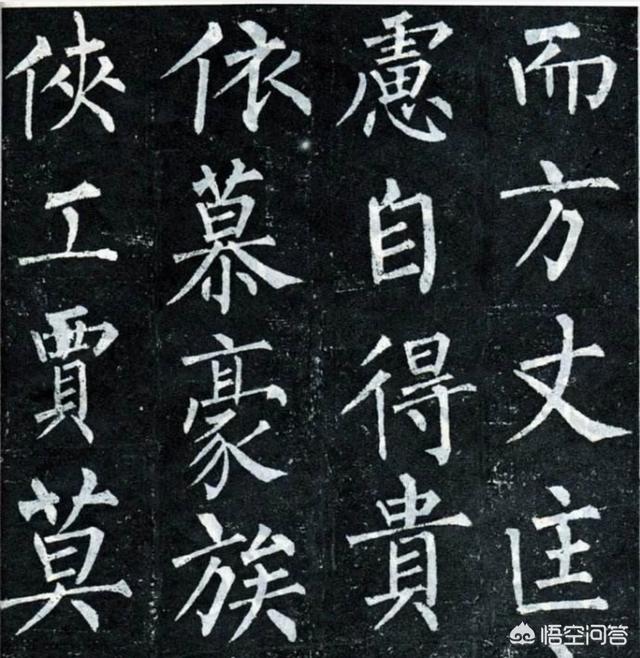 而方丈匡
慮自得貴
依慕豪族
俠工賈莫
悟空问答